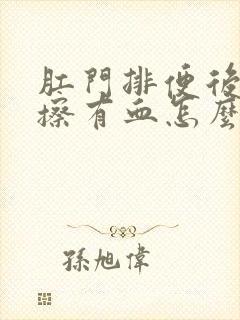 肛門排便後
擦有血怎麼
孫旭偉